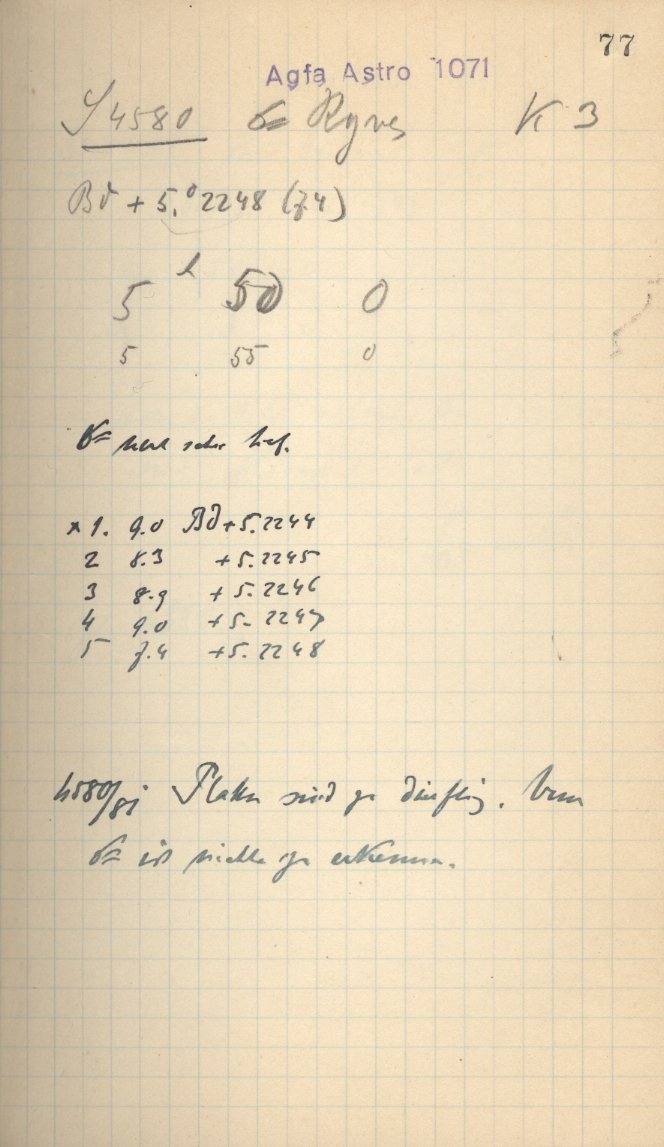 77
Agfa Astro 1071
S 4580 ☄ Ryves K 3
Bd + 5.°2248 (7.4)
5 h 50 0
5 55 0
☄ sehr tief.
x 1. 9.0 Bd+5.2244
2 8.3 +5.2245
3 8.9 +5.2246
4 9.0 +5.2247
5 7.4 +5.2248
4580/81 Platten sind zu dürftig. Vom
☄ ist nichts zu erkennen.